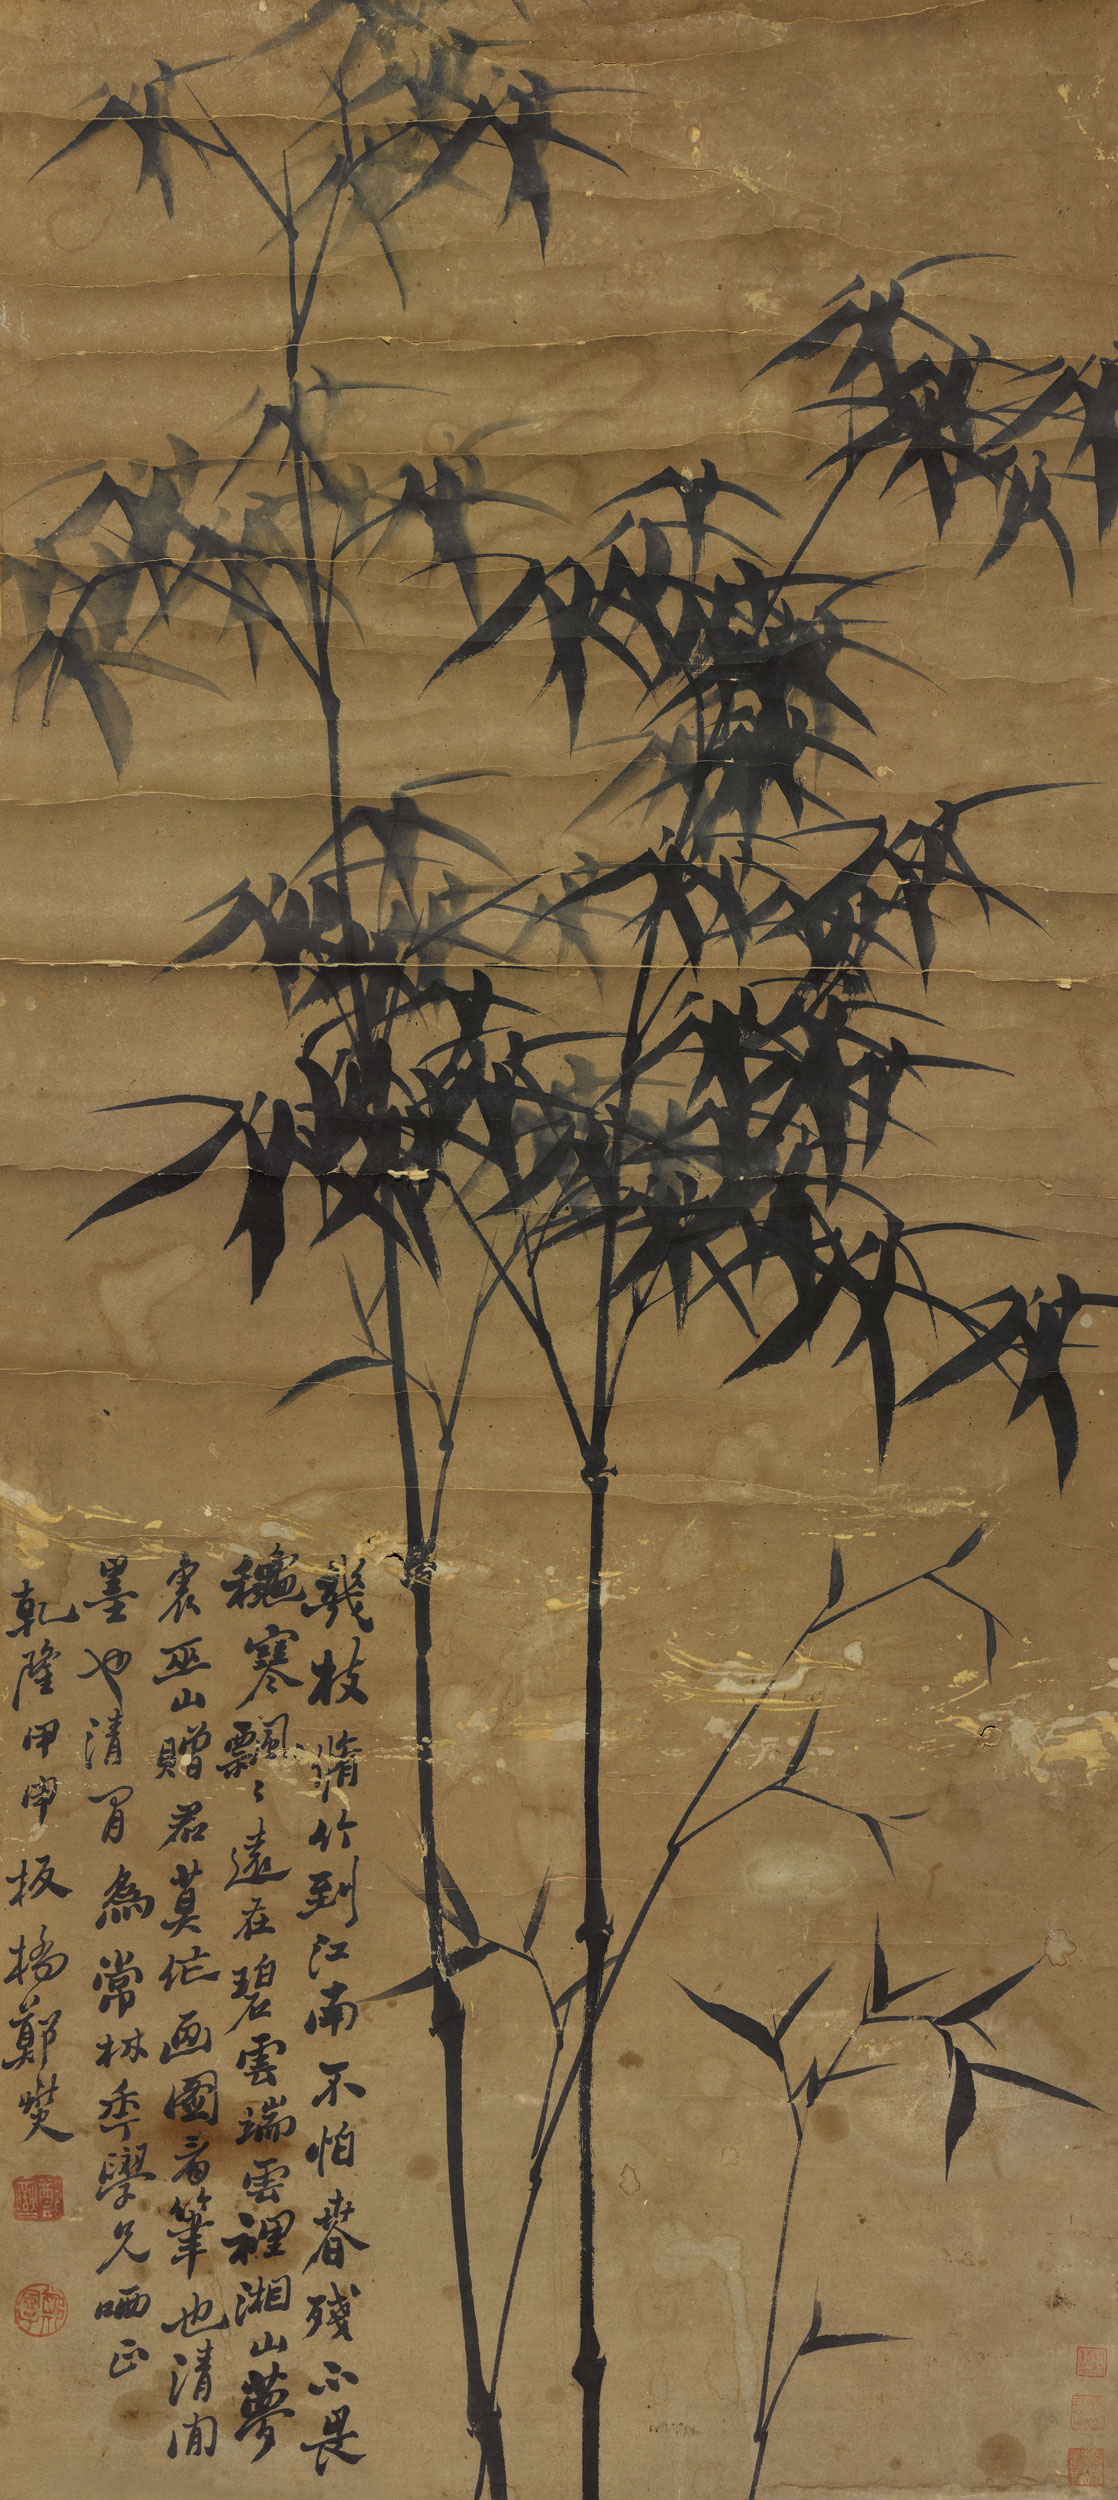 幾枝脩竹到江南不怕春殘不畏
秋寒飄飄遠在碧雲端雲裡湘山夢
裏巫山贈君莫作画圖看筆也清閒
墨也清閒為常林年學兄哂正
乾隆甲申板橋鄭燮